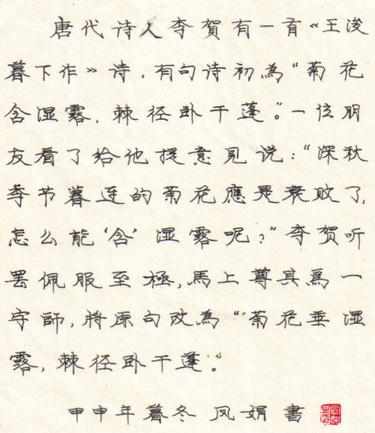 唐代诗人李賀有一首《王浚
暮下作》诗，有句诗初為“菊花
含湿露，棘径卧干蓬。”一位朋
友看了给他提意見说：“深秋
季节暮连的菊花應是衰败了，
怎么能‘含’湿露呢？”李贺听
罢佩服至極，馬上尊其爲一
字師，将原句改為“菊花垂湿
露，棘径卧干蓬。”
甲申年暮冬 凤娟書